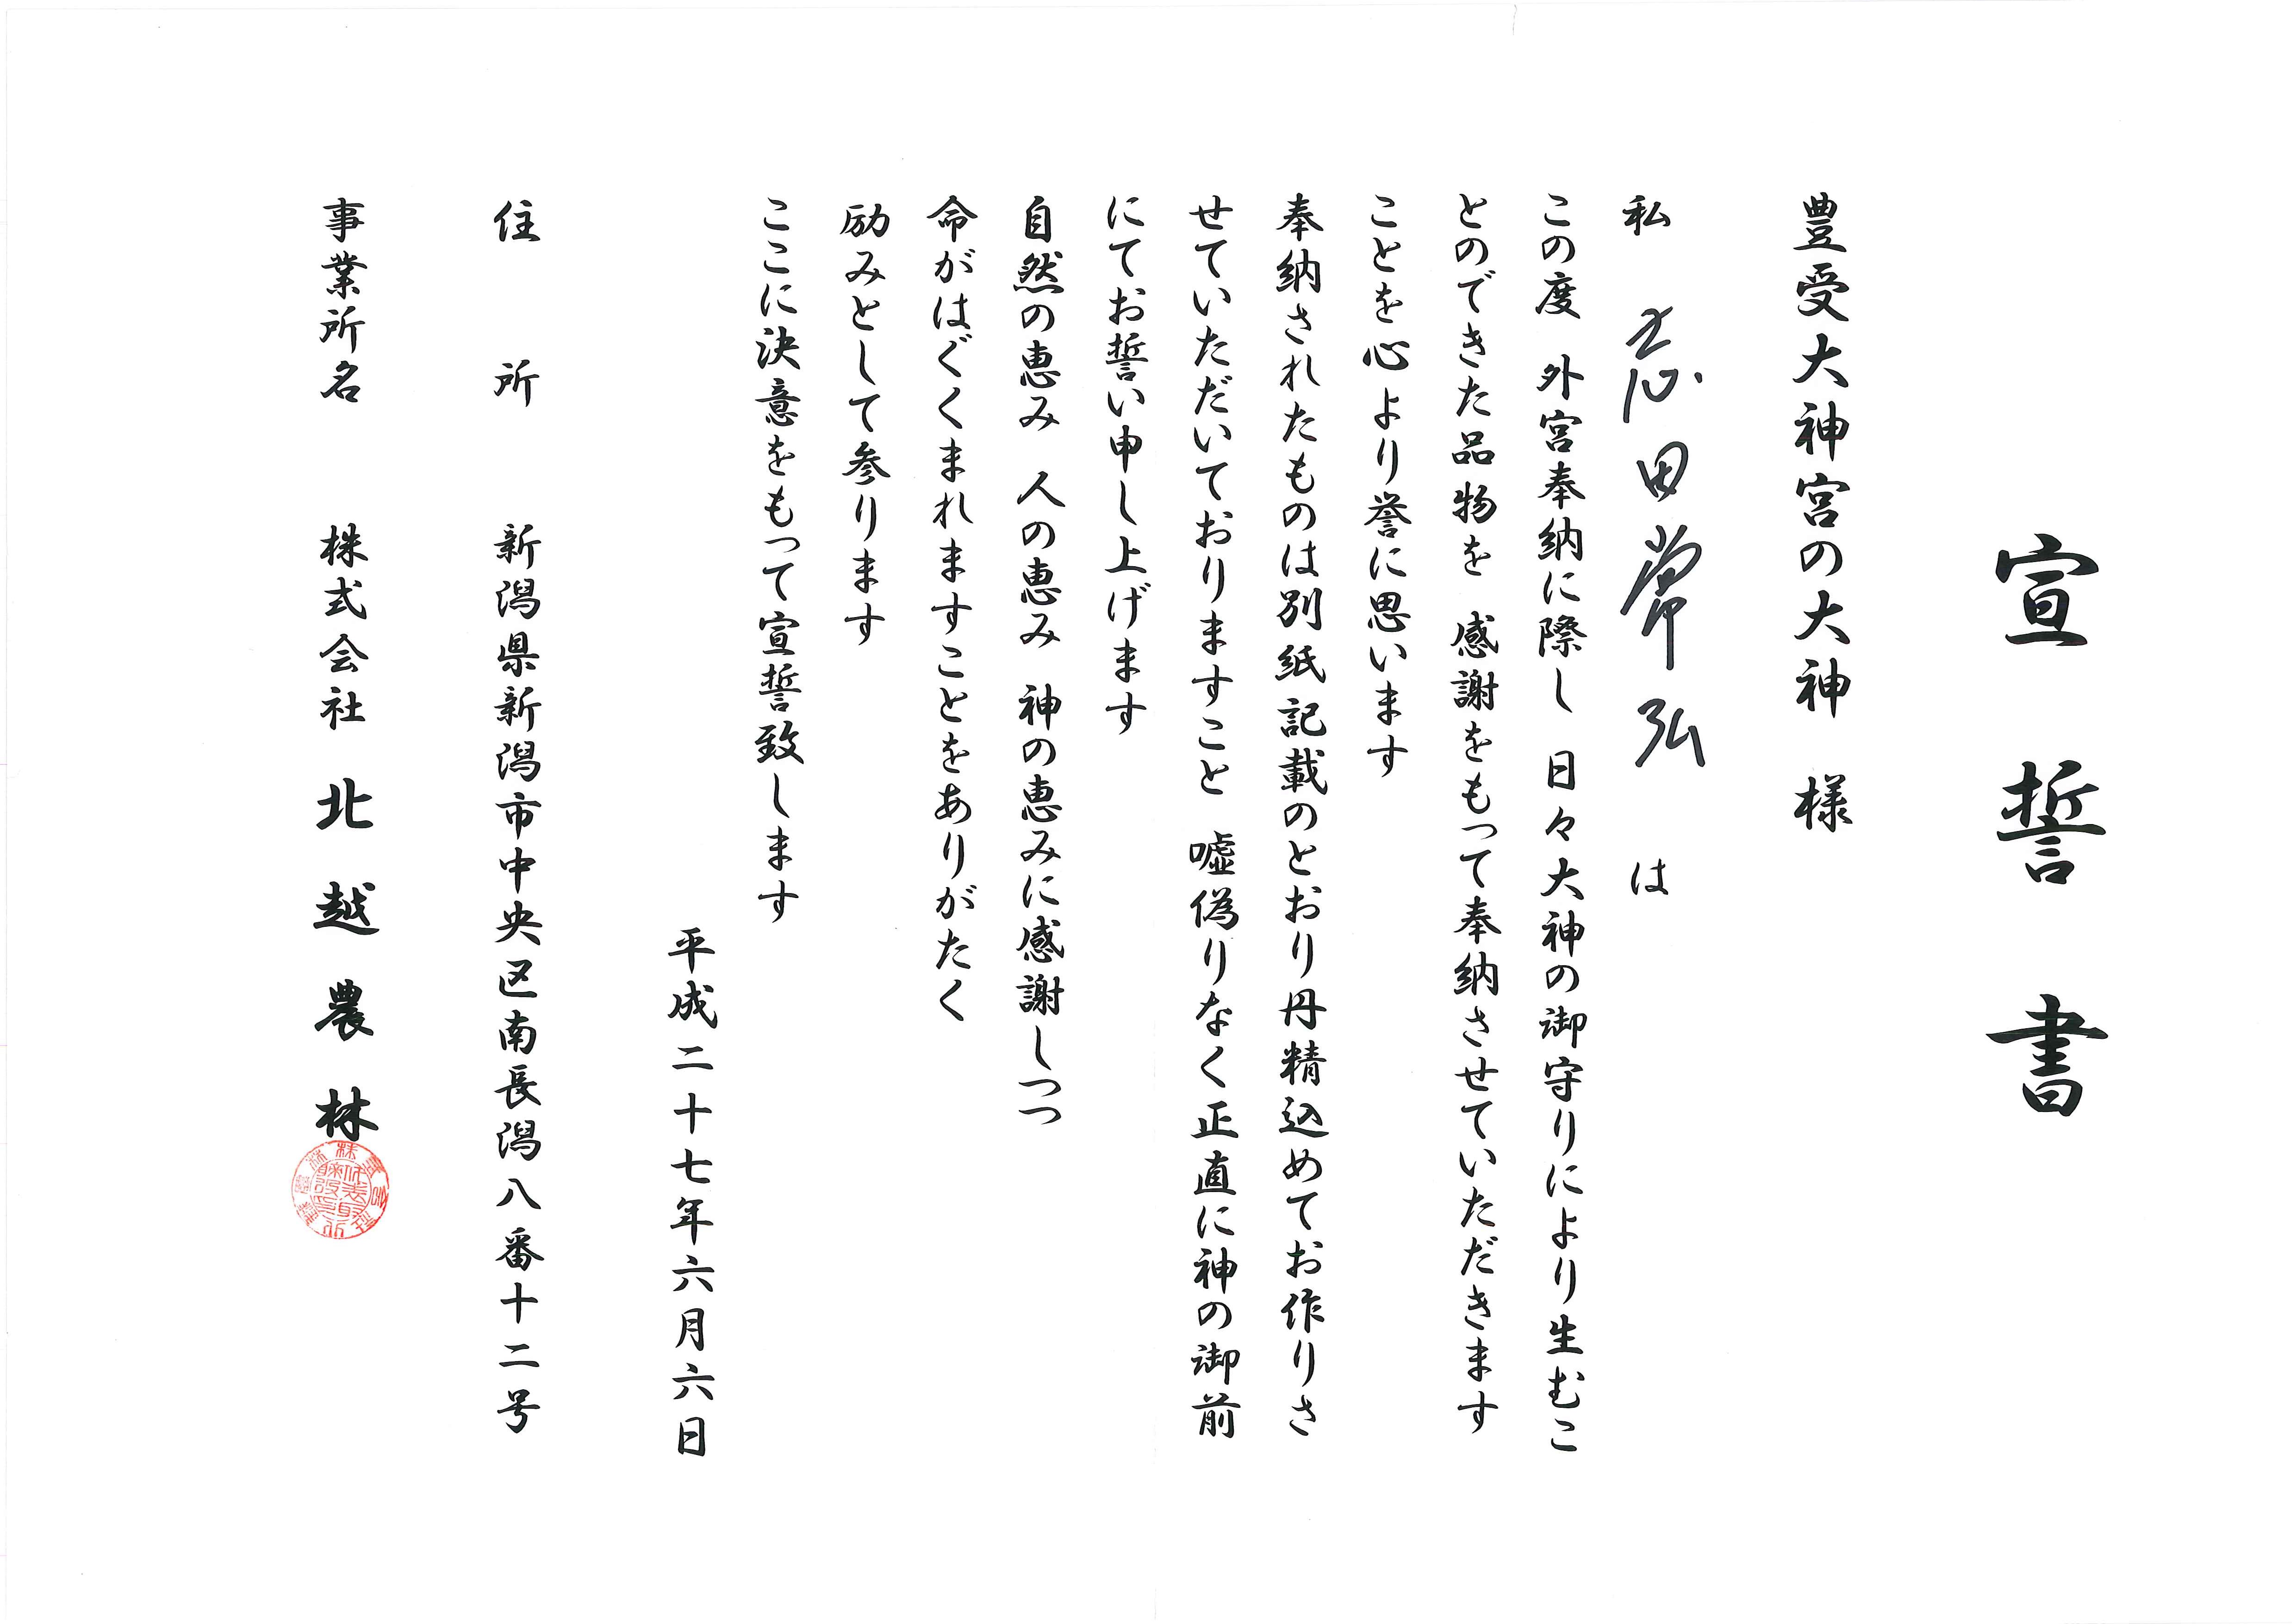 宣誓書
豊受大神宮の大神 様
私 志田常弘 は
この度 外宮奉納に際し 日々大神の御守りにより生むこ
とのできた品物を 感謝をもって奉納させていただきます
ことを心より誉に思います
奉納されたものは別紙記載のとおり丹精込めてお作りさ
せていただいておりますこと 嘘偽りなく正直に神の御前
にてお誓い申し上げます
自然の恵み 人の恵み 神の恵みに感謝しつつ
命がはぐくまれますことをありがたく
励みとして参ります
ここに決意をもって宣誓致します
平成二十七年六月六日
住所 新潟県新潟市中央区南長潟八番十二号
事業所名 株式会社 北越農林